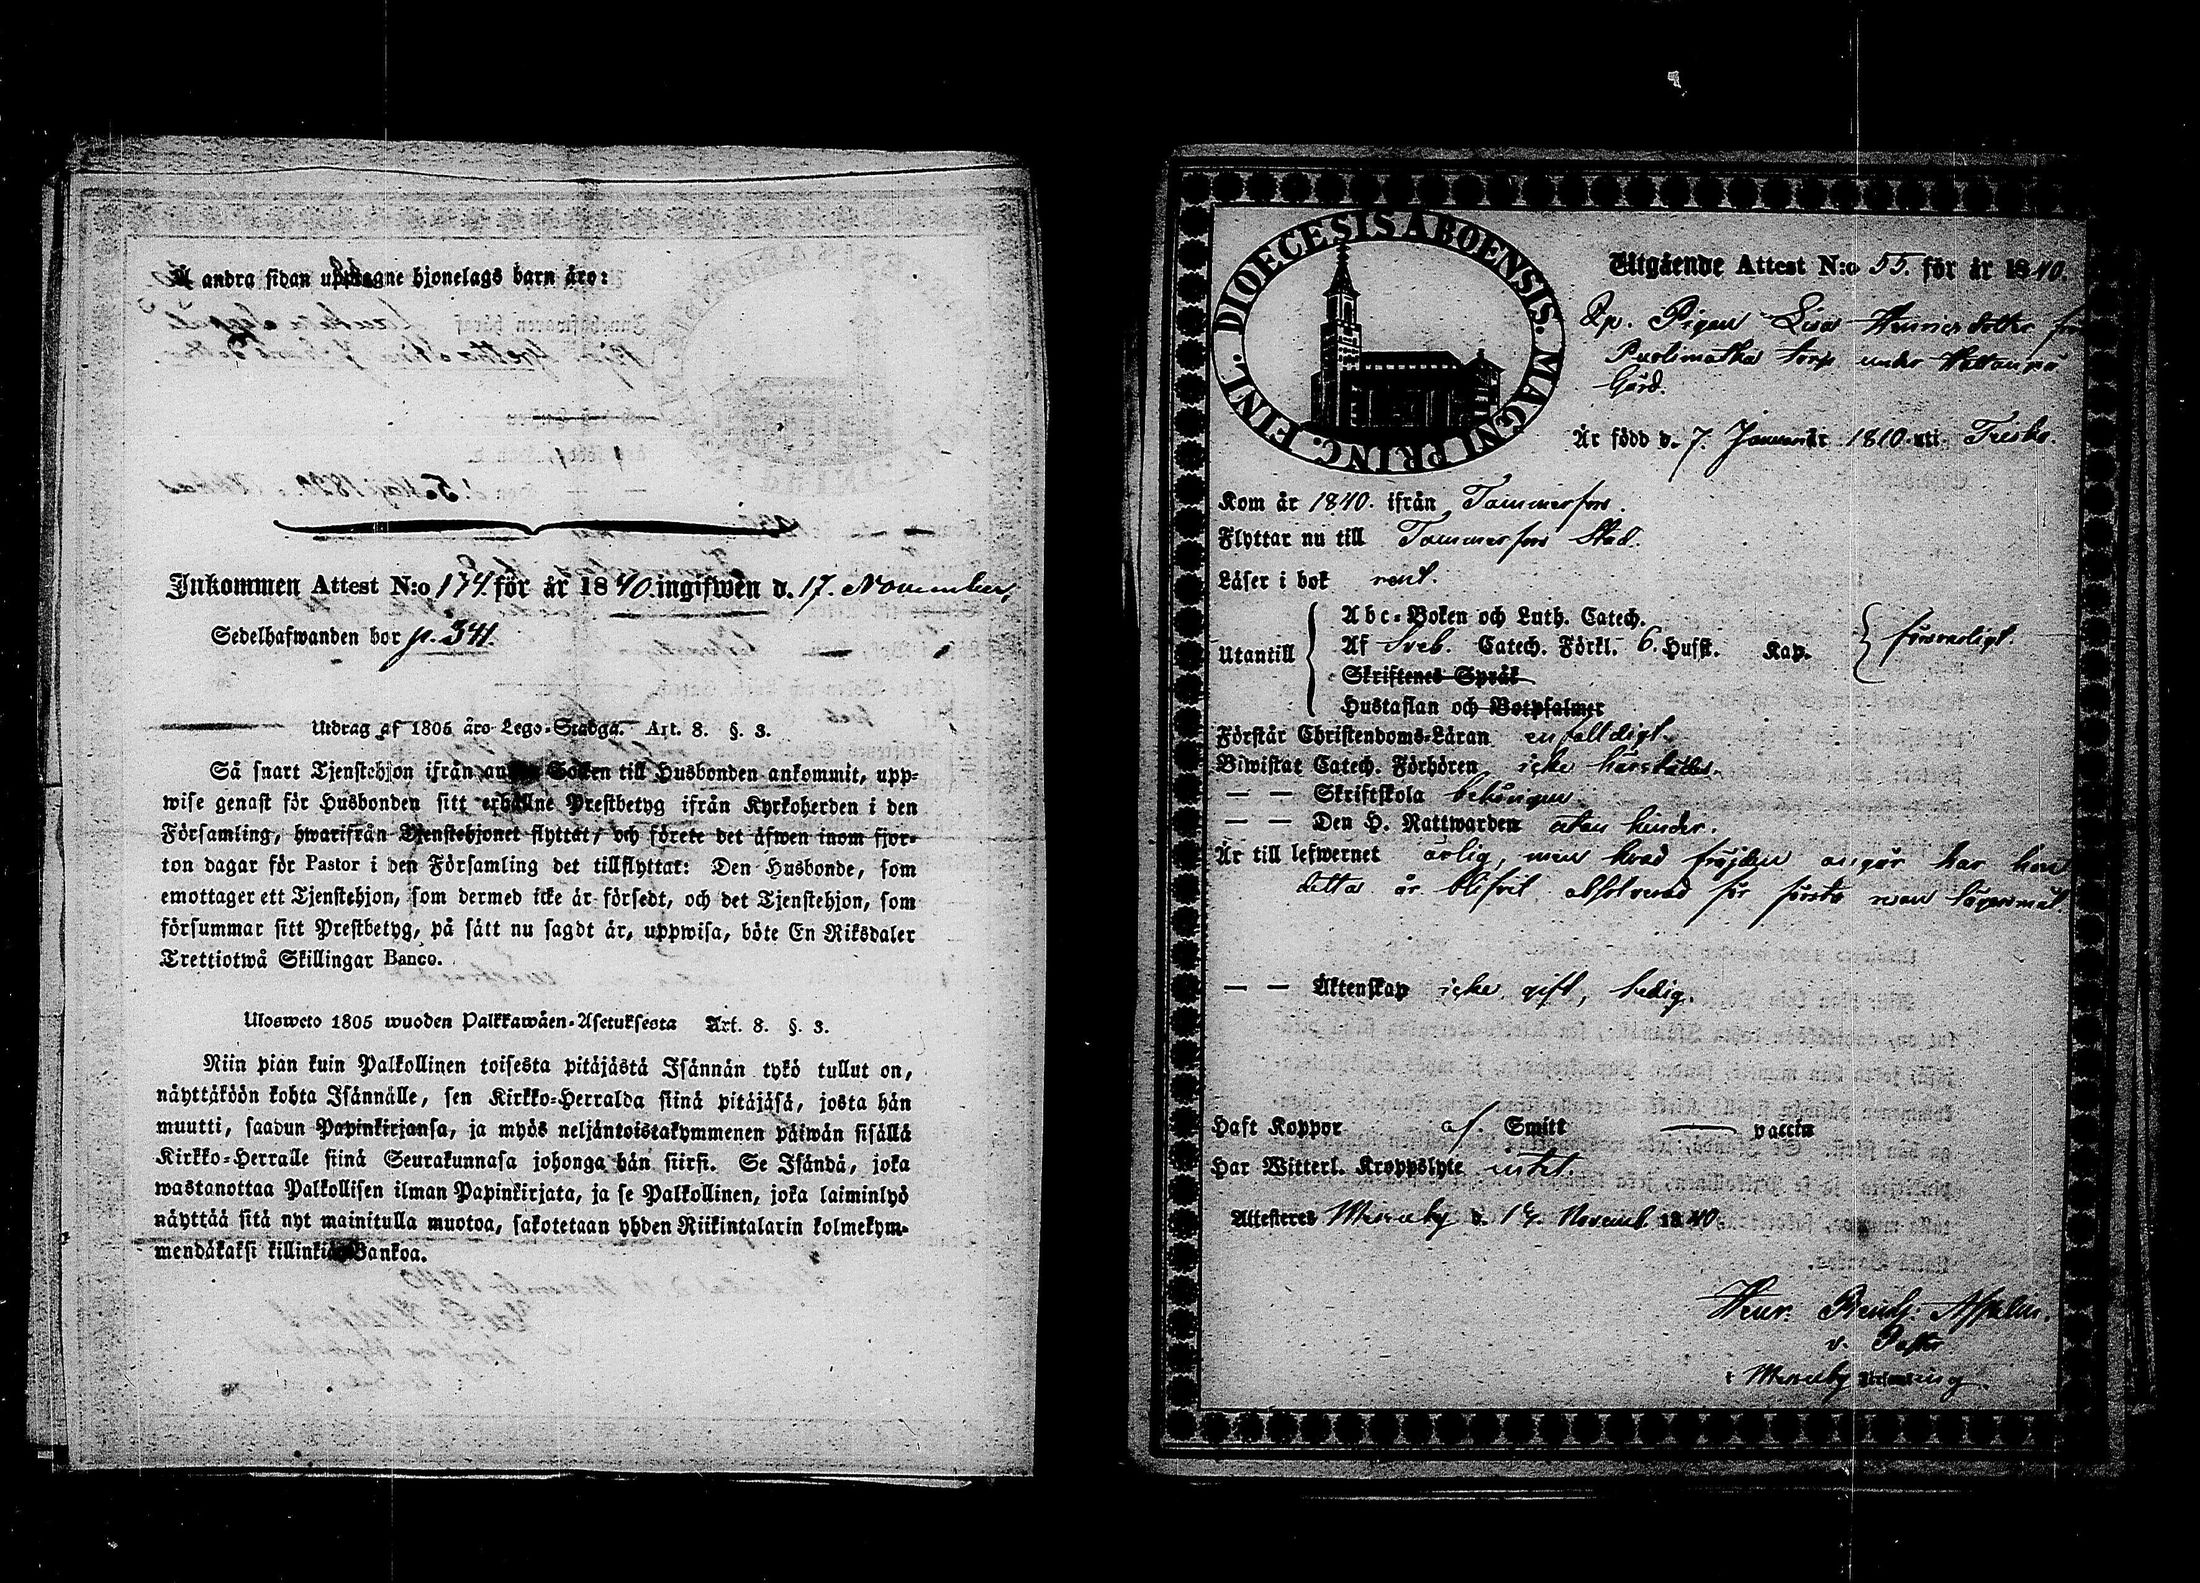 Å andra sidan upptagne hjonelags barn äro:
Inkommen Attest N:o 174. för år 1840. ingifwen d. 17. November,
Sedelhafwanden bor p. 341.
Utdrag af 1805 års Lego-Stadga. Art. 8. §. 3.
Så snart Tjenstehjon ifrån annan Socken till Husbonden ankommit, upp-
wise genast för Husbonden sitt erhållne Prestbetyg ifrån Kyrkoherden i den
Församling, hwarifrån Tjenstehjonet flyttat, och förete det äfwen inom fjor-
ton dagar för Pastor i den Församling det tillflyttat: Den Husbonde, som
emottager ett Tjenstehjon, som dermed icke är försedt, och det Tjenstehjon, som
försummar sitt Prestbetyg, på sätt nu sagdt är, uppwisa, böte En Riksdaler
Trettiotwå Skillingar Banco.
Ulosweto 1805 wuoden Palkkawäen-Asetuksesta Art. 8. §. 3.
Niin pian kuin Palkollinen toisesta pitäjästä Isännän tykö tullut on,
näyttäköön kohta Isännälle, sen Kirkko-Herralda siinä pitäjäsä, josta hän
muutti, saadun Papinkirjansa, ja myös neljäntoistakymmenen päiwän sisällä
Kirkko-Herralle siinä Seurakunnasa johonga hän siirsi. Se Isändä, joka
wastanottaa Palkollisen ilman Papinkirjata, ja se Palkollinen, joka laiminlyö
näyttää sitä nyt mainitulla muotoa, sakotetaan yhden Riikintalarin kolmekym-
mendäkaksi killinkiä Bankoa.
DIOECESIS ABOENSIS. MAGNI PRINC. FINL.
Utgående Attest N:o 55. för år 1840.
Pigan Lisa Henricsdotter
Puolimatka torp under
Gård.
Är född d. 7. Januarii 1810. uti
Kom år 1840. ifrån Tammerfors.
Flyttar nu till Tammerfors Stad.
Läser i bok rent.
Utantill
Abc-Boken och Luth. Catech.
Af Sveb. Catech. Förkl. 6. Hufst. Kap. försvarligt.
Skriftenes Språk
Hustaflan och Botpsalmer
Förstår Christendoms-Läran enfaldigt.
Biwistat Catech. Förhören icke härstädes.
— — Skriftskola behörigen.
— — Den H. Nattwarden utan hinder.
Är till lefwernet ärlig, men hvad frejden angår har hon
detta år blifvit absolverad för första resan lägersmål.
— — Äktenskap icke gift, ledig.
Haft Koppor af Smitt — vaccin
Har Witterl. Kroppslyte intet.
Attesteras Messuby d. 17. Novemb. 1840.
Henr. Bened.
v. Pastor
i Messuby församling.